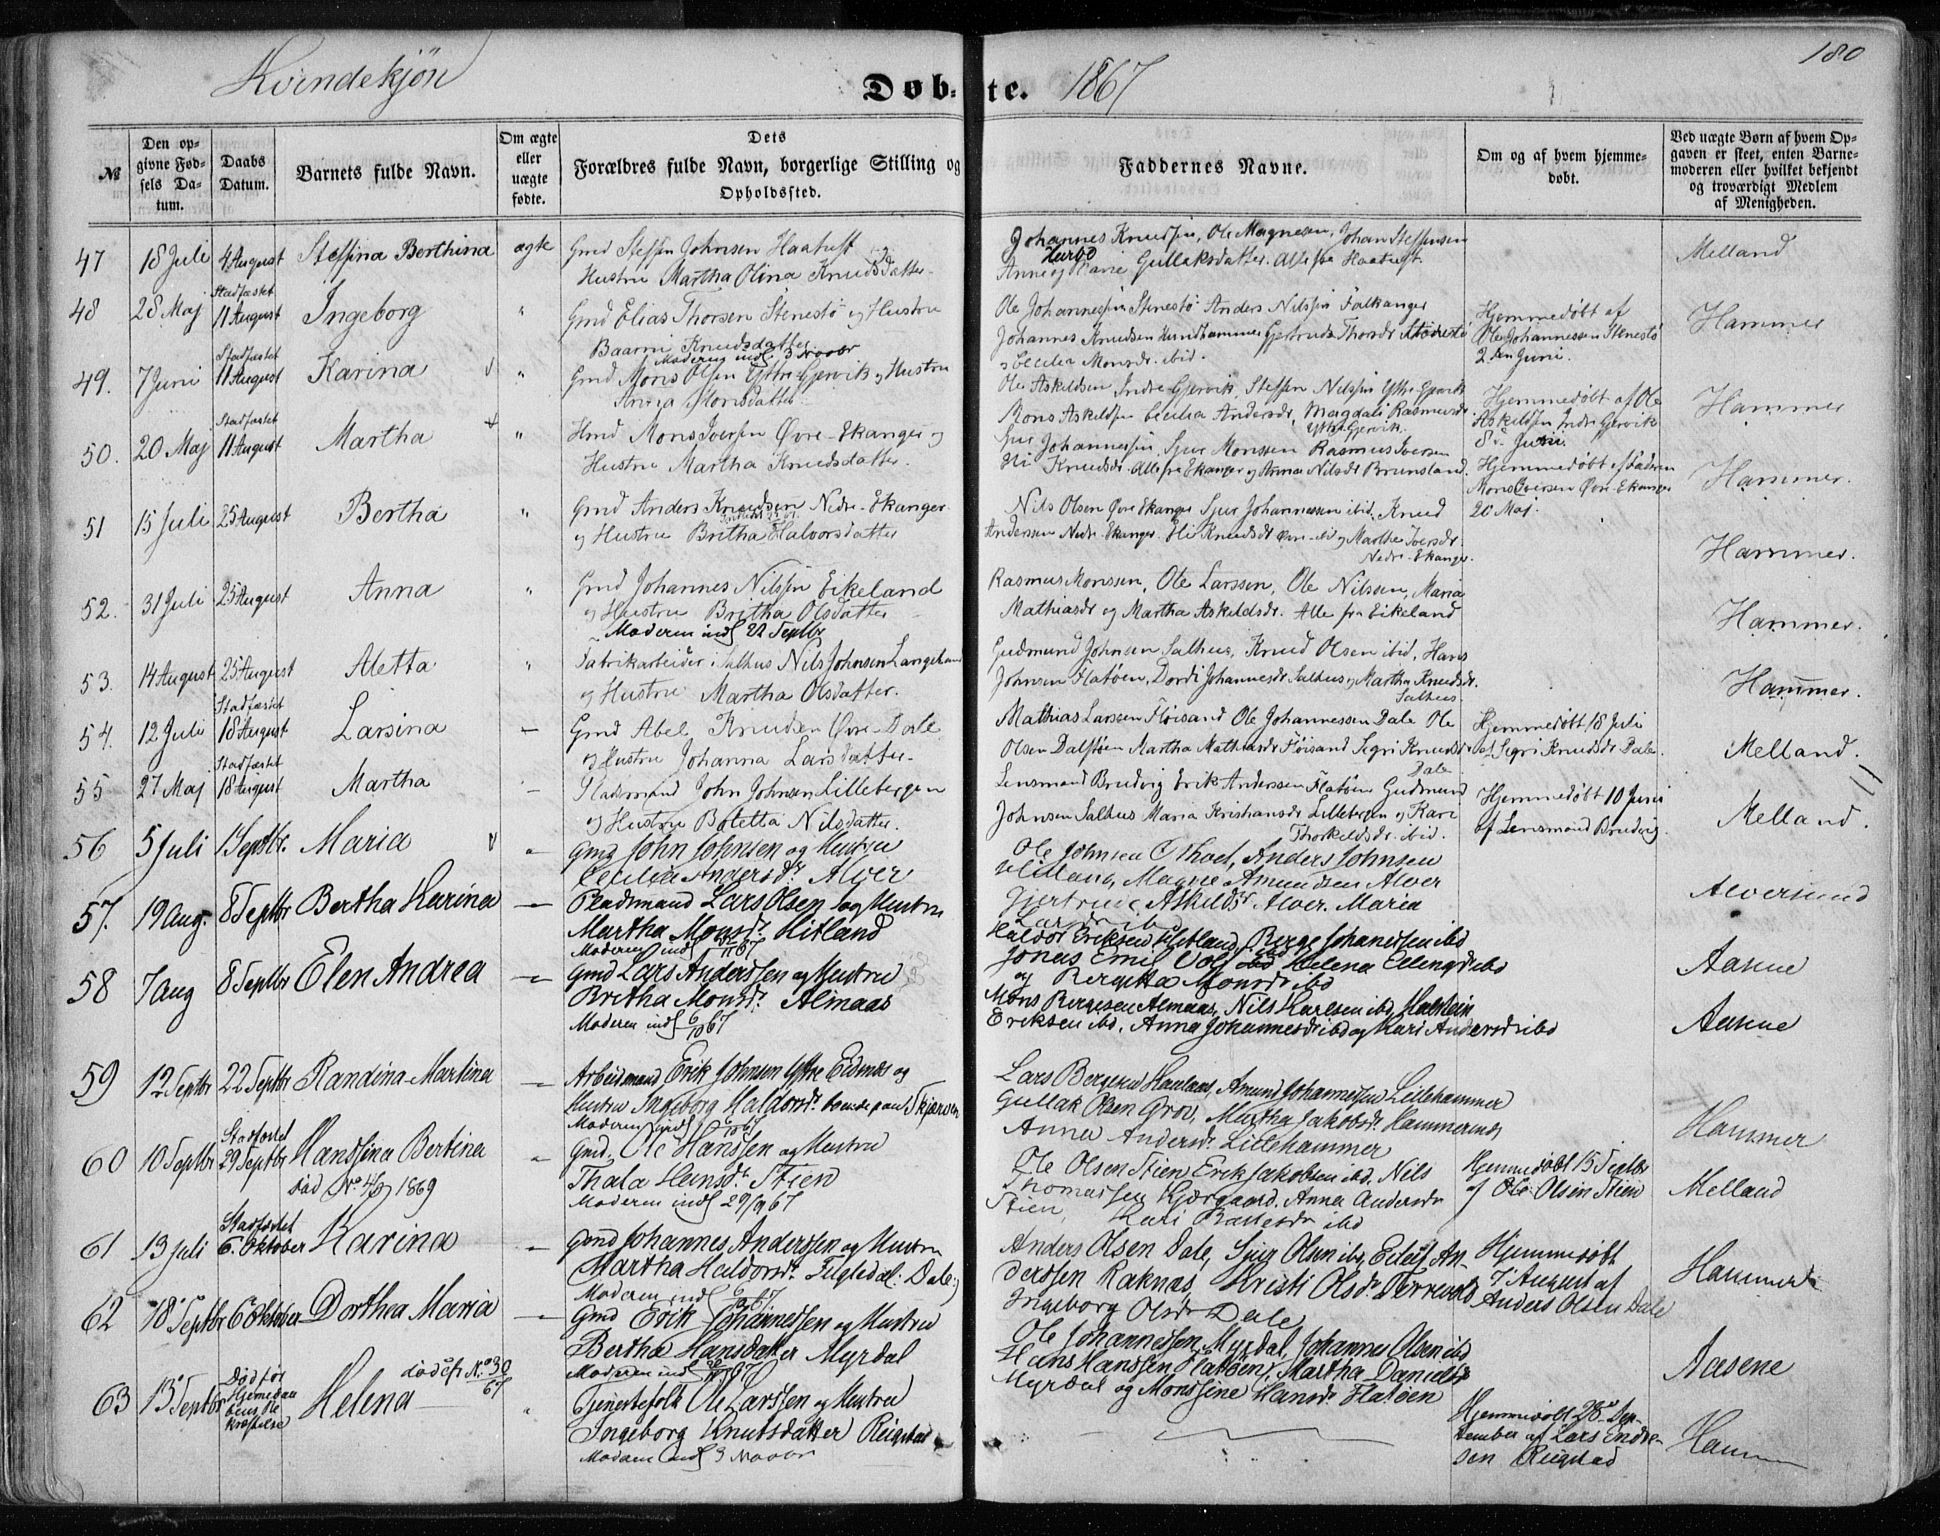 180
Kvindekjøn
Døb-te. 1867
№
Den opgivne Fødsels Datum.
Daabs Datum.
Barnets fulde Navn.
Om ægte eller uægte fødte.
Dets Forældres fulde Navn, borgerlige Stilling og Opholdssted.
Faddernes Navne.
Om og af hvem hjemmedøbt.
Ved uægte Børn af hvem Opgaven er skeet, enten Barnemoderen eller hvilket bekjendt og troværdigt Medlem af Menigheden.
47 18 Juli 4 August Steffina Berthina ægte Gmd Steffen Johnsen Haatuft
Hustru Martha Olina Knudsdatter
Johannes Knudsen, Ole Magnesen, Johan Steffensen
Anne og Marie Gullaksdatter. Alle fra Haatuft
Melland
48 28 Maj Stadfæstet 11 August Ingeborg " Gmd Elias Thorsen Stenestø og Hustru
Baarni Knudsdatter
Ole Johannesen Stenestø Anders Nilsen Falkanger
Johannes Knudsen Hundhammer Gjertrude Thorsdr Stenestø
og Cecilia Monsdr. ibid.
Hjemmedøbt af
Ole Johannessen Stenestø
2den Juni.
Hammer
49. 7 Juni Stadfæstet 11 August Karina " Moderen indl 3 Novbr
Gmd Mons Olsen Ytre Gjervik og Hustru
Anna Monsdatter
Ole Askildsen Indre Gjervik, Steffen Nilsen Ytre Gjervik
Mons Askildsen Cecilia Andersdr, Magdali Rasmusdr
Ytre Gjervik.
Hjemmedøbt af Ole
Askildsen Indre Gjervik
8 Juni.
Hammer
50. 20 Maj Stadfæstet 11 August Martha " Hmd Mons Iversen Øvre-Ekanger og
Hustru Martha Knudsdatter.
Johannesen, Sjur Monssen Rasmus Iversen
Eli Knudsdr. Alle fra Ekanger og Anna Nilsdr Brunsland.
Hjemmedøbt af Faderen
Mons Iversen Øvre-Ekanger
20 Maj.
Hammer.
51 15 Juli 25 August Bertha " Gmd Anders Knudsen Nedre-Ekanger
og Hustru Britha Halvorsdatter
Nils Olsen Øvre Ekanger Sjur Johannessen ibid. Knud
Anderssen Nedre-Ekanger. Eli Knudsdr Øvre-ibid og Marthe Iversdr.
Nedre-Ekanger.
Hammer.
52. 31 Juli 25 August Anna " Gmd Johannes Nilsen Eikeland
og Hustru Britha Olsdatter
Moderen indl 22 Septbr
Rasmus Monssen, Ole Larssen, Ole Nilssen, Maria
Mathiasdr og Martha Askildsdr. Alle fra Eikeland
Hammer.
53. 14 August 25 August Aletta " Fabrikarbeider i Salhus Nils Johnsen Langeland
og Hustru Martha Olsdatter.
Gudmund Johnsen Salhus, Knud Olsen ibid, Hans
Johnsen Flatøen, Dordi Johannesdr Salhus og Martha Knudsdr.
Salhus.
Hammer.
54. 12 Juli Stadfæstet 18 August Larsina — Gmd Abel Knudsen Øvre-Dale
og Hustru Johanna Larsdatter
Mathias Larssen Fløisand Ole Johannessen Dale Ole
Olsen Dalstøen Martha Mathiasdr Fløisand Segri Knudsdr
Dale
Hjemmedøbt 18 Juli
af Segri Knudsdr Dale.
Melland.
55 27 Maj Stadfæstet 18 August Martha — Pladsmand John Johnsen Lillebergen
og Hustru Boletta Nilsdatter.
Lensmand Brudvig Erik Anderssen Flatøen Gudmund
Johnsen Salhus Maria Kristiansdr Lillebergen og Kari
Thorkeldsdr. ibid.
Hjemmedøbt 10 Juni
af Lensmand Brudvig.
Melland.
56 5 Juli 1 Septbr. Maria — Gmd John Johnsen og Hustru
Cecilia Andersdr. Alver
Ole Johnsen , Anders Johnsen
, Magne Amundsen Alver
Gjertrud Askildsdr Alver. Maria
Larsdr ibd
Alversund
57. 19 Aug. 8 Septbr Bertha Karina — Pladsmand Lars Olsen og Hustru
Martha Monsdr. Hitland
Moderen indl /67
Haldor Eriksen Hitland, Berge Johannessen ibd
Jonas Emil ibd Helena Ellingsdr ibd
og Bergitta Monsdr ibd
Aasene
58 7 Aug 8 Septbr Elen Andrea — Gmd Lars Anderssen og Hustru
Britha Monsdr. Almaas
Moderen indl 6/10 67
Mons Bergesen Almaas, Nils Karlsen ibd, Halstein
Eriksen ibd, Anna Johannesdr ibd og Kari Andersdr ibd
Aasene
59 12 Septbr 22 Septbr Randina Martina — Arbeidsmand Erik Johnsen Ytre Eidnes og
Hustru Ingeborg Haldorsdr. boende paa Skjersen
Moderen indl 67
Lars Bergesen , Amund Johannessen Lillehammer
Gullak Olsen Grov, Martha Jakobsdr. Hammersund
Anna Andersdr Lillehammer
Hammer
60 10 Septbr Stadfæstet 29 Septbr Hanssina Bertina — Gmd. Ole Hanssen og Hustru
Død No 4/9 1869
Thala Hansdr. Stien
Moderen indl 29/9 67
Ole Olsen Stien Erik Jakobsen ibd. Nils
Thomassen Kjærgaard. Anna Andersdr
Stien, Kari ibd
Hjemmedøbt 15 Septbr
af Ole Olsen Stien
Melland
61 13 Juli Stadfæstet 6. Oktober Karina — Gmd Johannes Anderssen og Hustru
Martha Haldorsdr. (: Dale :)
Moderen indl 67
Anders Olsen Dale, Sjur Olsen ibd, Eiluf Anderssen Raknæs, Kristi Olsdr
Ingeborg Olsdr Dale
Hjemmedøbt
7 August af
Anders Olsen Dale
Hammer
62 18 Septbr 6 Oktober Dorthea Maria — Gmd Erik Johannessen og Hustru
Bertha Hansdatter Myrdal
Moderen indl 67
Ole Johannessen, Myrdal, Johannes Olsen ibd
Hans Hanssen Flatøen, Martha Danielsdr
Myrdal og Monssine Hansdr Flatøen
Aasene
63 15 Septbr Død før Hjemmedaabens Bekræftelse Helena død cfr No 30/67 " Tjenestefolk Ole Larssen og Hustru
Ingeborg Knutsdatter Reigstad
Moderen indl 3 Novbr
Hjemmedøbt 28 September af Lars Endresen Reigstad
Hammer